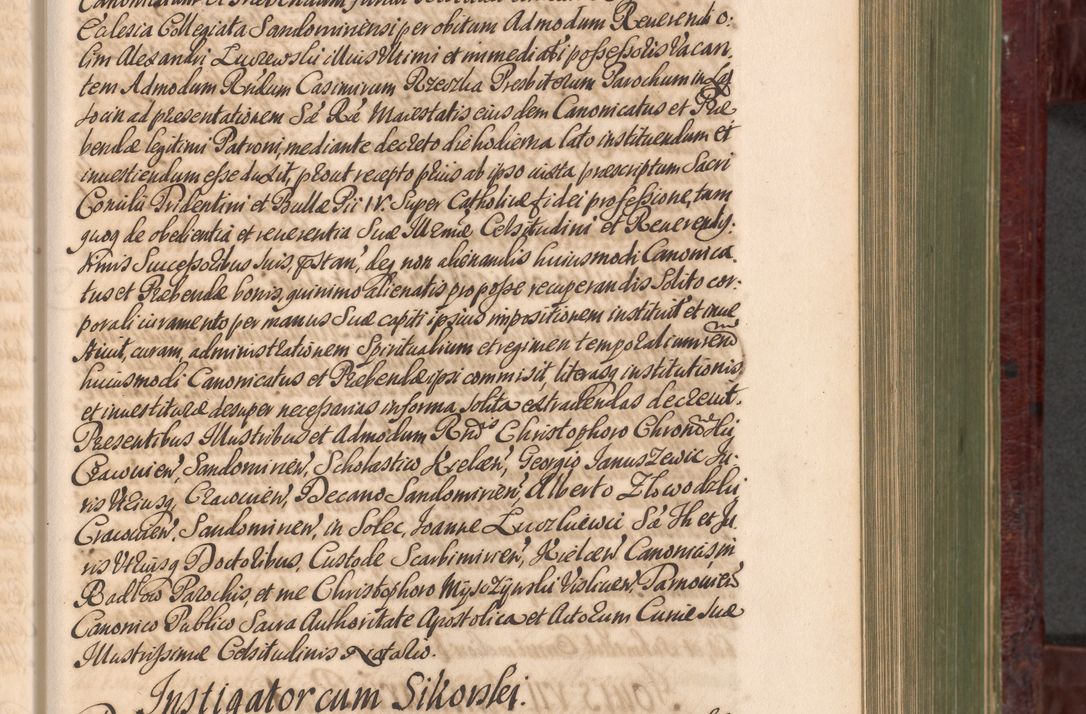 Canonicatum et Præbendam
Ecclesia Collegiata Sandomiriensi per obitum Admodum Reuerendi o-
lim Alexandri Luszewskii illius vltimi et immediati possessoris vacan-
tem Admodum Rndum Casimirum Rzeszka Presbiterum Parochum in
ad præsentationem Sæ Ræ Maiestatis eiusdem Canonicatus et Præ-
bendæ legitimi Patroni, mediante decreto die hodierna lato instituendum et
inuestiendum esse duxit, prout recepto prius ab ipso iuxta præscriptum Sacri
Concilii Tridentini et Bullæ Pii IV. Super Catholicæ fidei professione, tam
quoq de obedientia et reuerentia Suæ Illmæ Celsitudini et Reuerendis-
simis Successoribus suis, præstan', deq non alienandis huiusmodi Canonica-
tus et Præbendæ bonis, quinimo alienatis pro posse recuperandis solito cor-
porali iuramento per manus Suæ capiti ipsius impositionem instituit et inue-
stiuit, curam, administrationem Spiritualium et regimen temporalium rerum
huiusmodi Canonicatus et Præbendæ ipsi commisit, literasq institutionis
et inuestituræ desuper necessarias in forma solita extradendas decreuit.
Præsentibus Illustribus et Admodum Rndis Christophoro Chronowski
Cracouien', Sandomirien', Scholastico Kielcen', Georgio Januszewic Ju-
ris Vtriusq, Cracouien', Decano Sandomirien', Alberto Zlowodzki
Cracouien', Sandomirien', in Solec, Joanne Sæ Th et Ju-
ris Vtriusq Doctoribus, Custode Scarbimirien', Kielcen' Canonicis, in
Badkow Parochis, et me Christophoro Myszzynskii Vislicien', Tarnouien'
Canonico Publico Sacra Authoritate Apostolica et Actorum Curiæ Suæ
Illustrissimæ Celsitudinis Notario.
Instigator cum Sikorski.